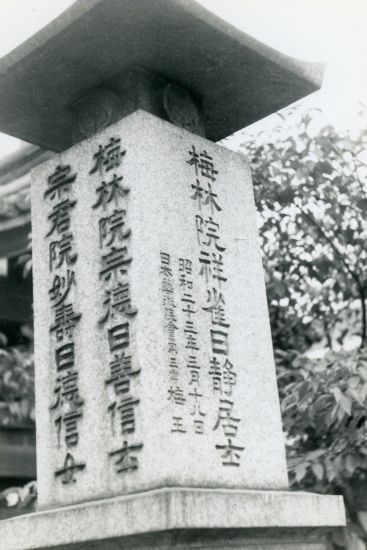 梅林院祥雀日静居士
昭和二十三年三月十九日
日本 三世 梅王
梅林院宗徳日善信士
宗君院妙壽日徳信女